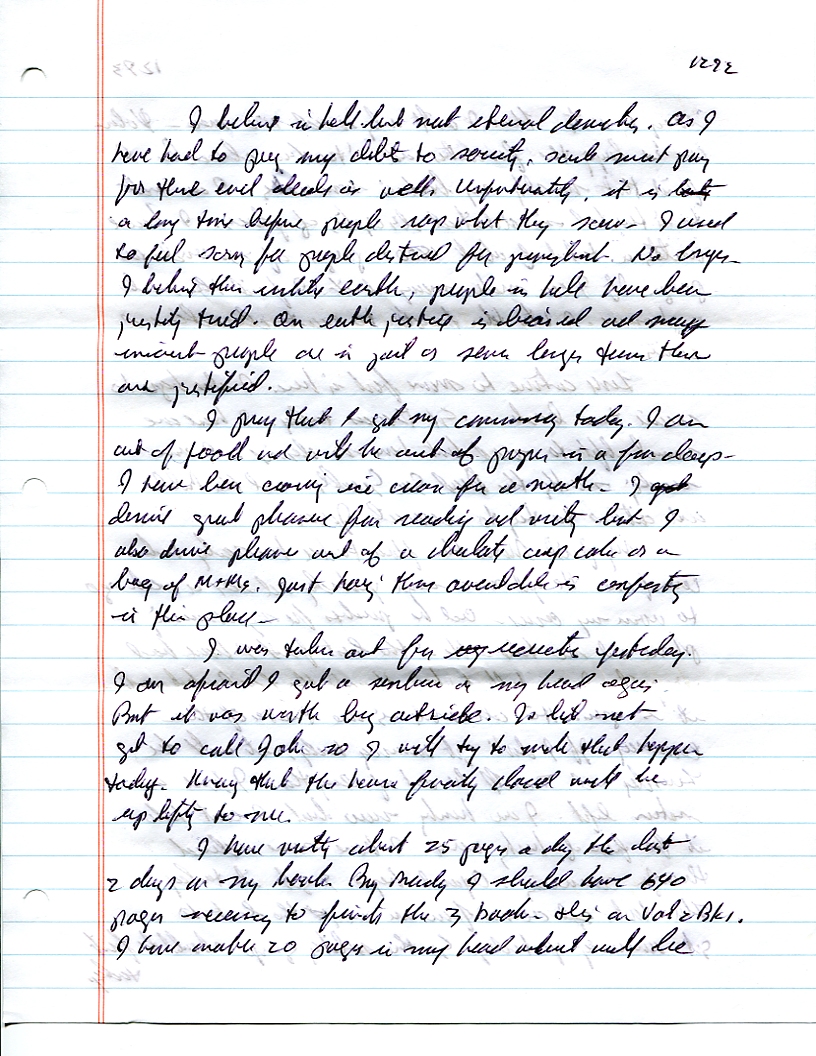 1292
I believe in hell but not eternal . As I
have had to pay my debt to society, must pay
for their evil deeds as well. Unfortunately, it is
a long time before people reap what they sow. I used
to feel sorry for people destined for . No longer.
I believe this unlike earth, people in hell have been
justly tried. On earth justice is biased and many
innocent people are in jail or serve longer terms than
are justified.
I pray that I get my commissary today. I am
out of food and will be out of paper in a few days.
I have been craving ice cream for a month. I
derive great pleasure from reading and writing but I
also derive pleasure out of a chocolate cup cake or a
bag of M+Ms. Just having them available is comforting
in this place.
I was taken out for recreation yesterday.
I am afraid I got a sunburn on my head again.
But it was worth being outside. I did not
get to call John so I will try to make that happen
today. Knowing that the house finally closed will be
uplifting to me.
I have written about 25 pages a day the last
2 days on my book. By I should have 640
pages necessary to finish the 3 books this on Vol 2 Bk 1.
I have another 20 pages in my head which will be